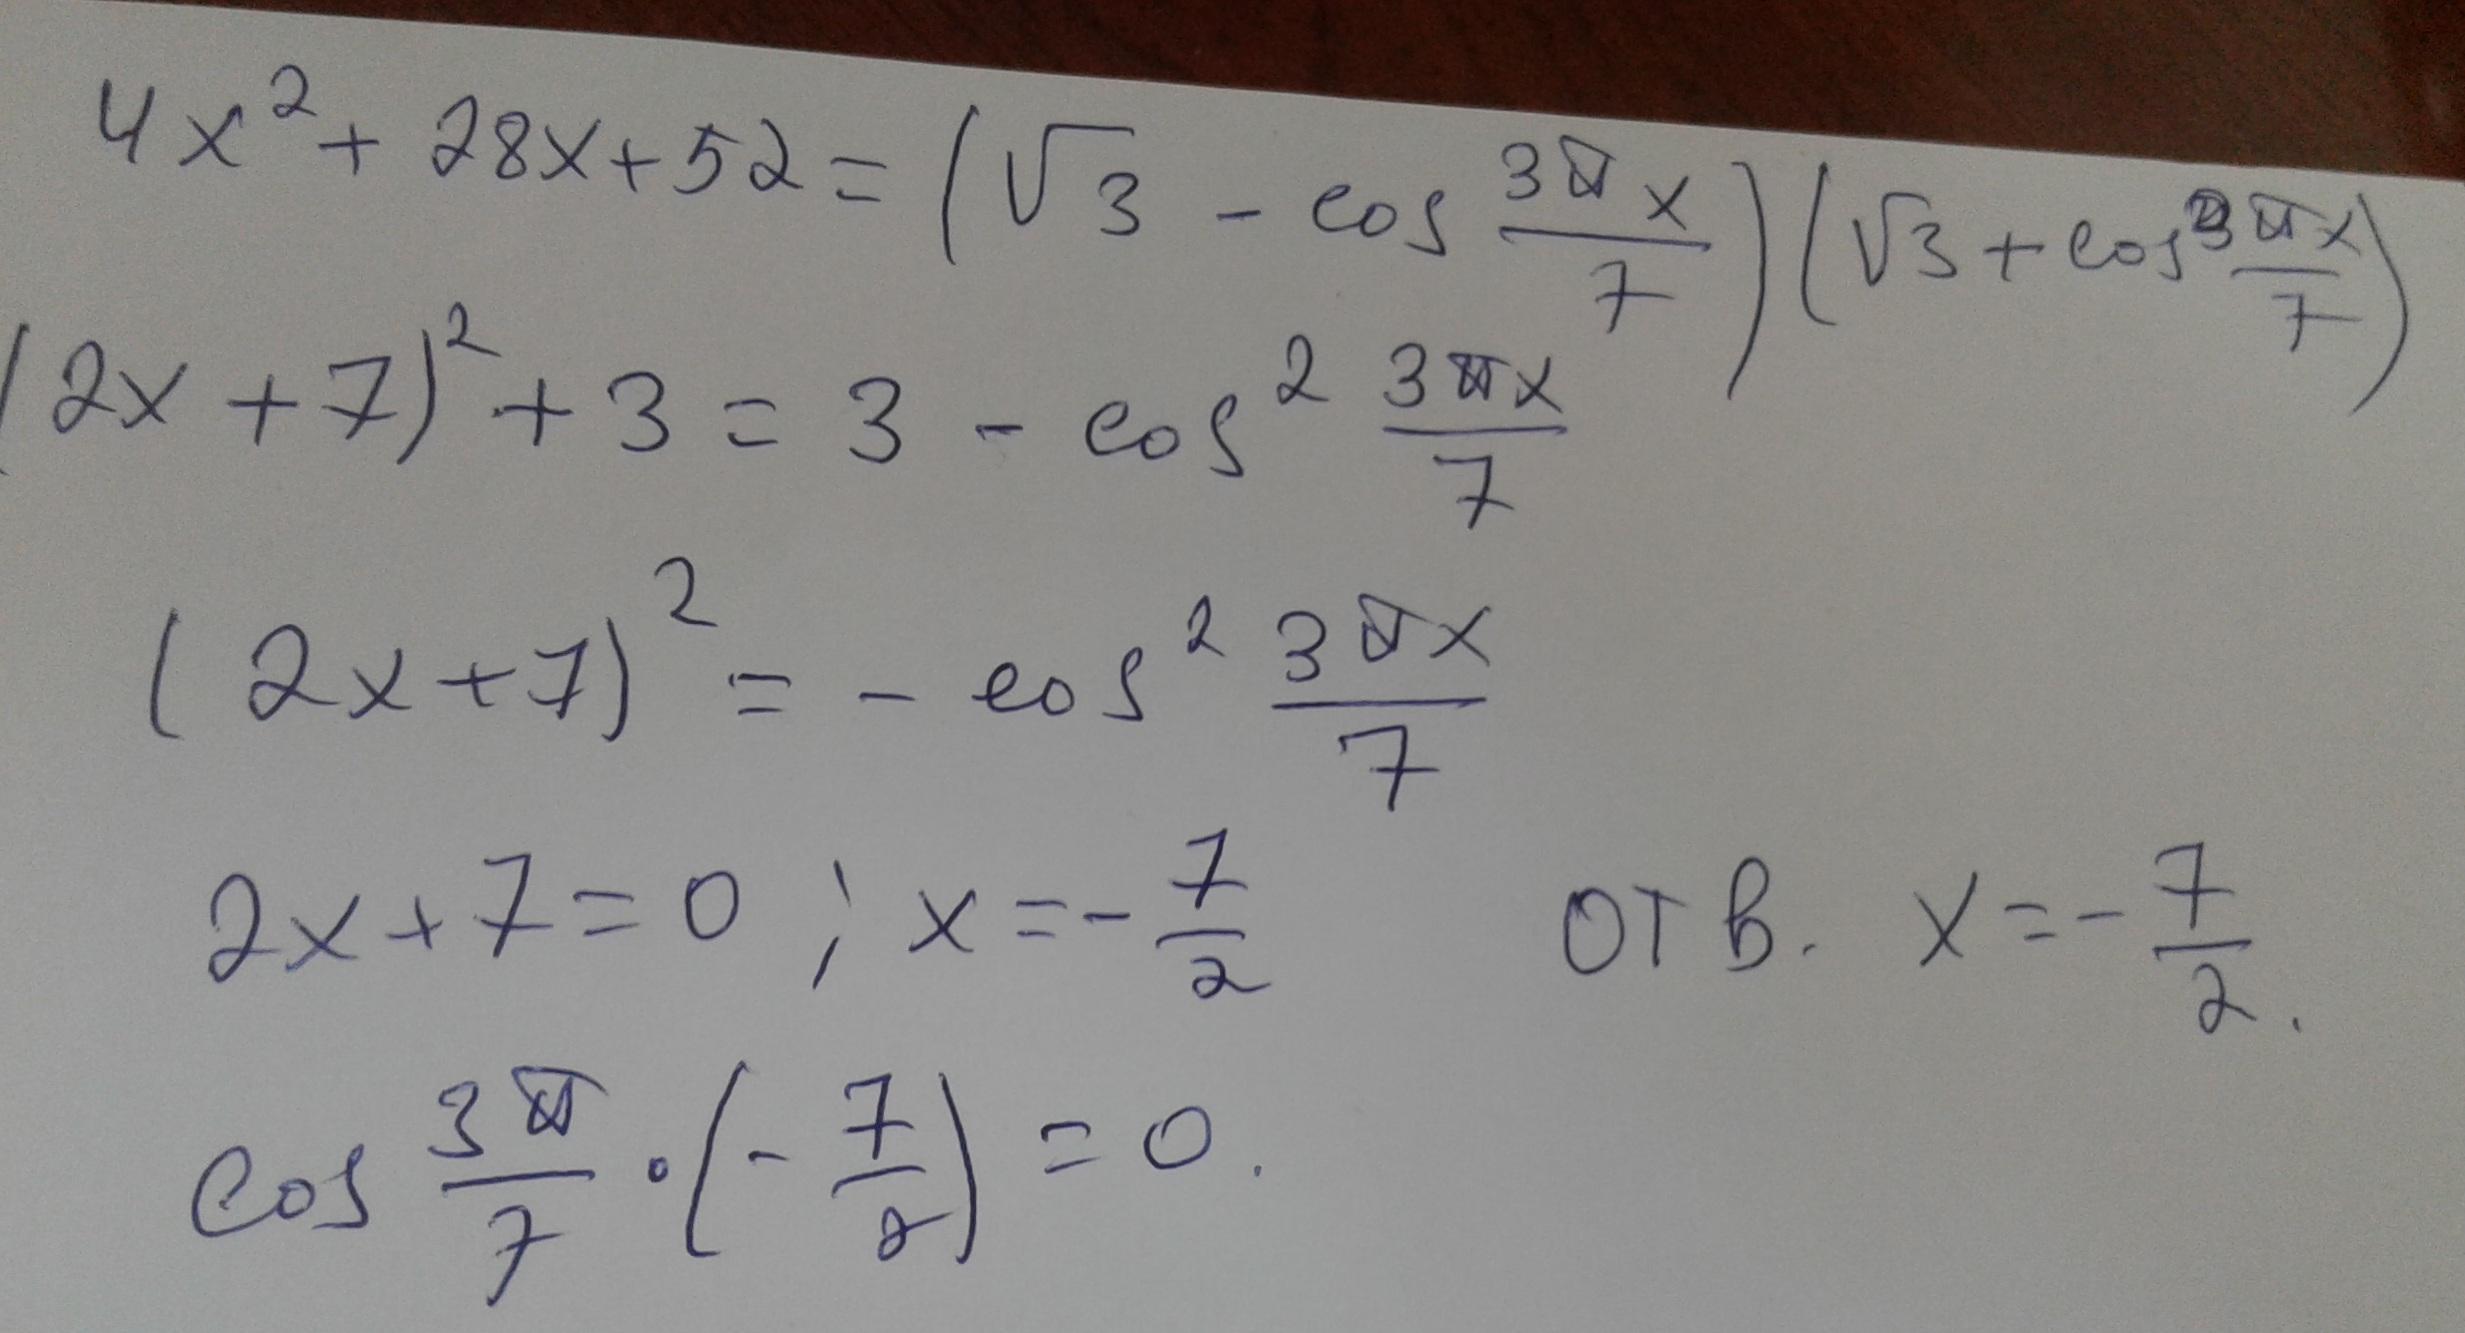 4x² + 28x + 52 = (√3 - cos 3πx/7)(√3 + cos 3πx/7)
(2x + 7)² + 3 = 3 - cos² 3πx/7
(2x + 7)² = - cos² 3πx/7
2x + 7 = 0 ; x = - 7/2 ОТВ. x = - 7/2.
cos 3π/7 · (- 7/2) = 0.